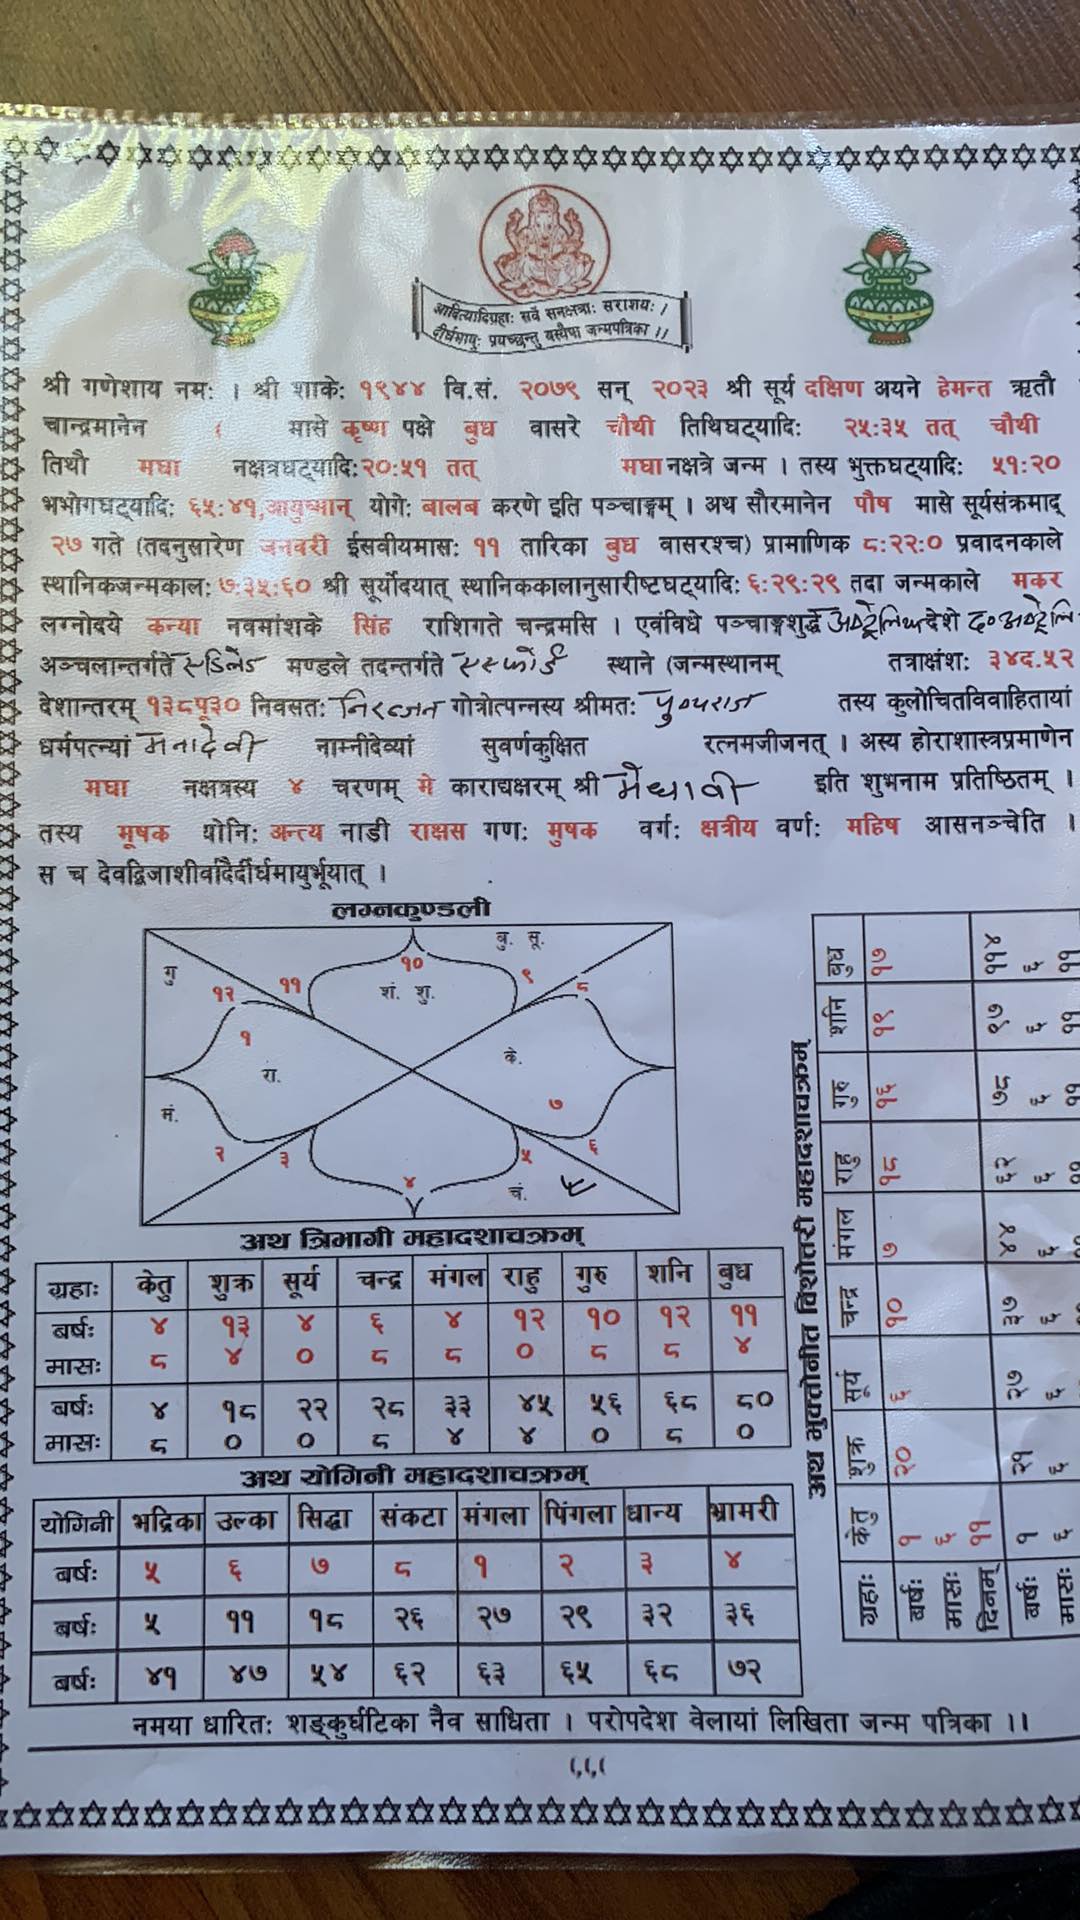 आदित्यादिग्रहाः सर्वे सनक्षत्राः सराशयः ।
दीर्घमायुः प्रयच्छन्तु यस्यैषा जन्मपत्रिका ।।
श्री गणेशाय नमः । श्री शाकेः १९४४ वि.सं. २०७९ सन् २०२३ श्री सूर्य दक्षिण अयने हेमन्त ऋतौ
चान्द्रमानेन मासे कृष्ण पक्षे बुध वासरे चौथी तिथिघट्यादिः २५:३५ तत् चौथी
तिथौ मघा नक्षत्रघट्यादिः २०:५१ तत् मघा नक्षत्रे जन्म । तस्य भुक्तघट्यादिः ५१:२०
भभोगघट्यादिः ६५:४१,आयुष्मान् योगेः बालब करणे इति पञ्चाङ्गम् । अथ सौरमानेन पौष मासे सूर्यसंक्रमाद्
२७ गते (तदनुसारेण जनवरी ईसवीयमासः ११ तारिका बुध वासरश्च) प्रामाणिक ८:२२:० प्रवादनकाले
स्थानिकजन्मकालः ७:३५:६० श्री सूर्योदयात् स्थानिककालानुसारीष्टघट्यादिः ६:२९:२९ तदा जन्मकाले मकर
लग्नोदये कन्या नवमांशके सिंह राशिगते चन्द्रमसि । एवंविधे पञ्चाङ्गशुद्धे अष्ट्रेलिया देशे द०अष्ट्रेलि
अञ्चलान्तर्गते एडिलेड मण्डले तदन्तर्गते स्थाने (जन्मस्थानम् तत्राक्षंशः ३४द.५२
देशान्तरम् १३८पू३० निवसतः निरन्जन गोत्रोत्पन्नस्य श्रीमतः पुण्यराज तस्य कुलोचितविवाहितायां
धर्मपत्न्यां मनादेवी नाम्नीदेव्यां सुवर्णकुक्षित रत्नमजीजनत् । अस्य होराशास्त्रप्रमाणेन
मघा नक्षत्रस्य ४ चरणम् मे काराद्यक्षरम् श्री मेधावी इति शुभनाम प्रतिष्ठितम् ।
तस्य मूषक योनिः अन्त्य नाडी राक्षस गणः मुषक वर्गः क्षत्रीय वर्णः महिष आसनञ्चेति ।
स च देवद्विजाशीर्वादैर्दीर्घमायुर्भूयात् ।
लग्नकुण्डली
बु. सू.
गु १२ ११ १० ९ ८
शं. शु.
१ रा. के.
मं. ७
२ ३ ४ ५ ६
चं.
अथ त्रिभागी महादशाचक्रम्
ग्रहाः केतु शुक्र सूर्य चन्द्र मंगल राहु गुरु शनि बुध
बर्षः ४ १३ ४ ६ ४ १२ १० १२ ११
मासः ८ ४ ० ८ ८ ० ८ ८ ४
बर्षः ४ १८ २२ २८ ३३ ४५ ५६ ६८ ८०
मासः ८ ० ० ८ ४ ४ ० ८ ०
अथ योगिनी महादशाचक्रम्
योगिनी भद्रिका उल्का सिद्धा संकटा मंगला पिंगला धान्य भ्रामरी
बर्षः ५ ६ ७ ८ १ २ ३ ४
बर्षः ५ ११ १८ २६ २७ २९ ३२ ३६
बर्षः ४१ ४७ ५४ ६२ ६३ ६५ ६८ ७२
अथ भुक्तोनीत विशोत्तरी महादशाचक्रम्
ग्रहाः केतु शुक्र सूर्य चन्द्र मंगल राहु गुरु शनि बुध
बर्षः १ २० ६ १० ७ १८ १६ १९ १७
मासः ६
दिनम् ११
बर्षः १ २१ २७ ३७ ४४ ६२ ७८ ९७ ११४
मासः ६ ६ ६ ६ ६ ६ ६ ६ ६
११ ११ ११
नमया धारितः शङ्कुर्घटिका नैव साधिता । परोपदेश वेलायां लिखिता जन्म पत्रिका ।।